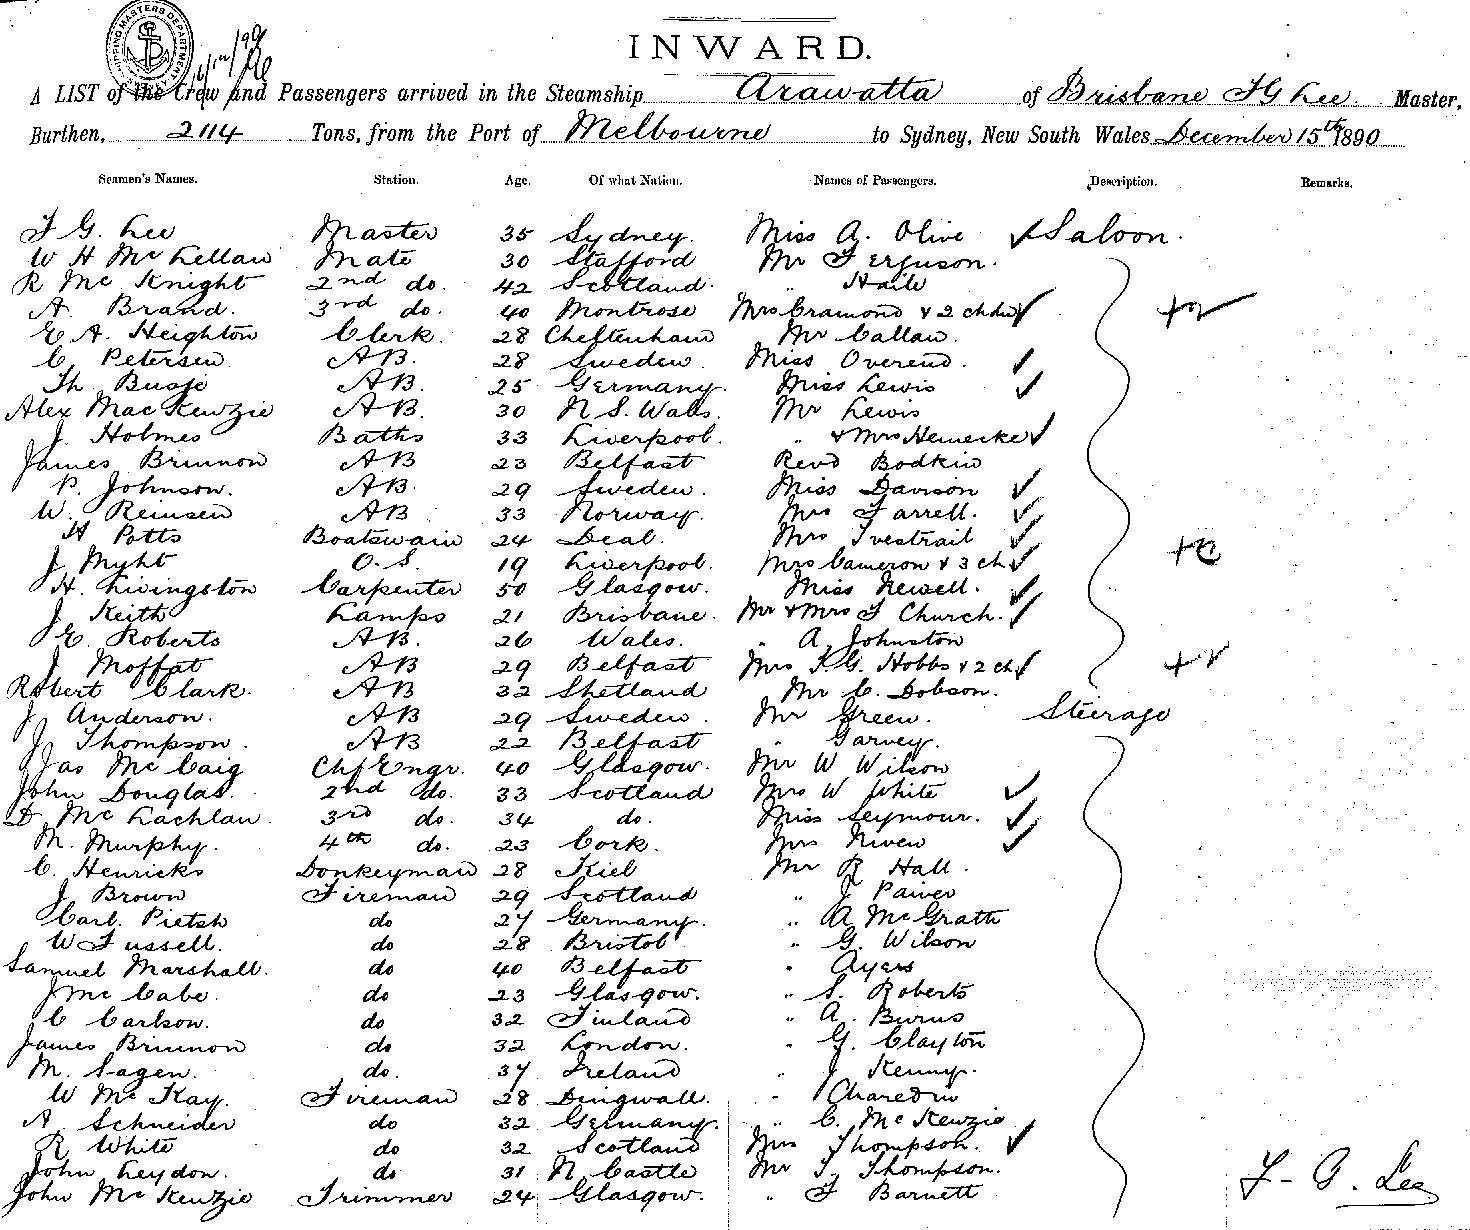 SHIPPING MASTERS DEPARTMENT
INWARD.
A LIST of the Crew and Passengers arrived in the Steamship Arawatta of Brisbane F G Lee Master,
Burthen, 2114 Tons, from the Port of Melbourne to Sydney, New South Wales December 15th 1890
Seamen's Names. Station. Age. Of what Nation. Names of Passengers. Description. Remarks.
F G. Lee Master 35 Sydney. Miss A. Olive ✓ Saloon.
W H McLellan Mate 30 Stafford Mr Ferguson.
R McKnight 2nd do. 42 Scotland. " Haile
A. Brand. 3rd do. 40 Montrose Mrs Cramond & 2 chdn ✓ +2
E A. Heighton Clerk. 28 Cheltenham Mr Callan.
C. Petersen AB. 28 Sweden. Miss Overend. ✓
Th Busse AB. 25 Germany. Miss Lewis ✓
Alex MacKenzie AB. 30 N S. Wales. Mr Lewis
J. Holmes Baths 33 Liverpool. " & Mrs Heinecke ✓
James Brinnon AB 23 Belfast Revd Bodkin
P. Johnson. AB. 29 Sweden. Miss Davison ✓
W. Reinsen AB 33 Norway. Mrs Farrell. ✓
H Potts Boatswain 24 Deal. Mrs Ivestrail ✓
J. Myht O.S. 19 Liverpool. Mrs Cameron & 3 ch ✓
H. Livingston Carpenter 50 Glasgow. Miss Newell. ✓
J. Keith Lamps 21 Brisbane. Mr & Mrs F Church. ✓
E. Roberts AB. 26 Wales. " A. Johnston
J. Moffat AB 29 Belfast Mrs F.G. Hobbs & 2 ch ✓ +2
Robert Clark. AB 32 Shetland Mr C. Dobson.
J. Anderson. AB 29 Sweden. Mr Green. Steerage
J. Thompson. AB 22 Belfast " Garvey.
Jas McCaig Chf Engr. 40 Glasgow. Mr W Wilson
John Douglas. 2nd do. 33 Scotland Mrs W White ✓
D. McLachlan. 3rd do. 34 do. Miss Seymour. ✓
M. Murphy. 4th do. 23 Cork. Mrs Niven ✓
C. Henricks Donkeyman 28 Kiel Mr R Hall.
J Brown Fireman 29 Scotland " J Paiver
Carl. Pietsh do 27 Germany. " A McGrath
W Fussell. do 28 Bristol " G. Wilson
Samuel Marshall. do 40 Belfast " Ayers
J McCabe. do 23 Glasgow. " S. Roberts
C Carlson. do 32 Finland " A. Burns
James Brinnon do 32 London. " G. Clayton
M. Sagen. do. 37 Ireland " J Kenny.
W McKay. Fireman 28 Dingwall. "
A. Schneider do 32 Germany. " C. McKenzie
R White do 32 Scotland Mrs Thompson. ✓
John Leydon. do 31 N Castle Mr T. Thompson.
John McKenzie Trimmer 24 Glasgow. " F Barnett
F- G. Lee